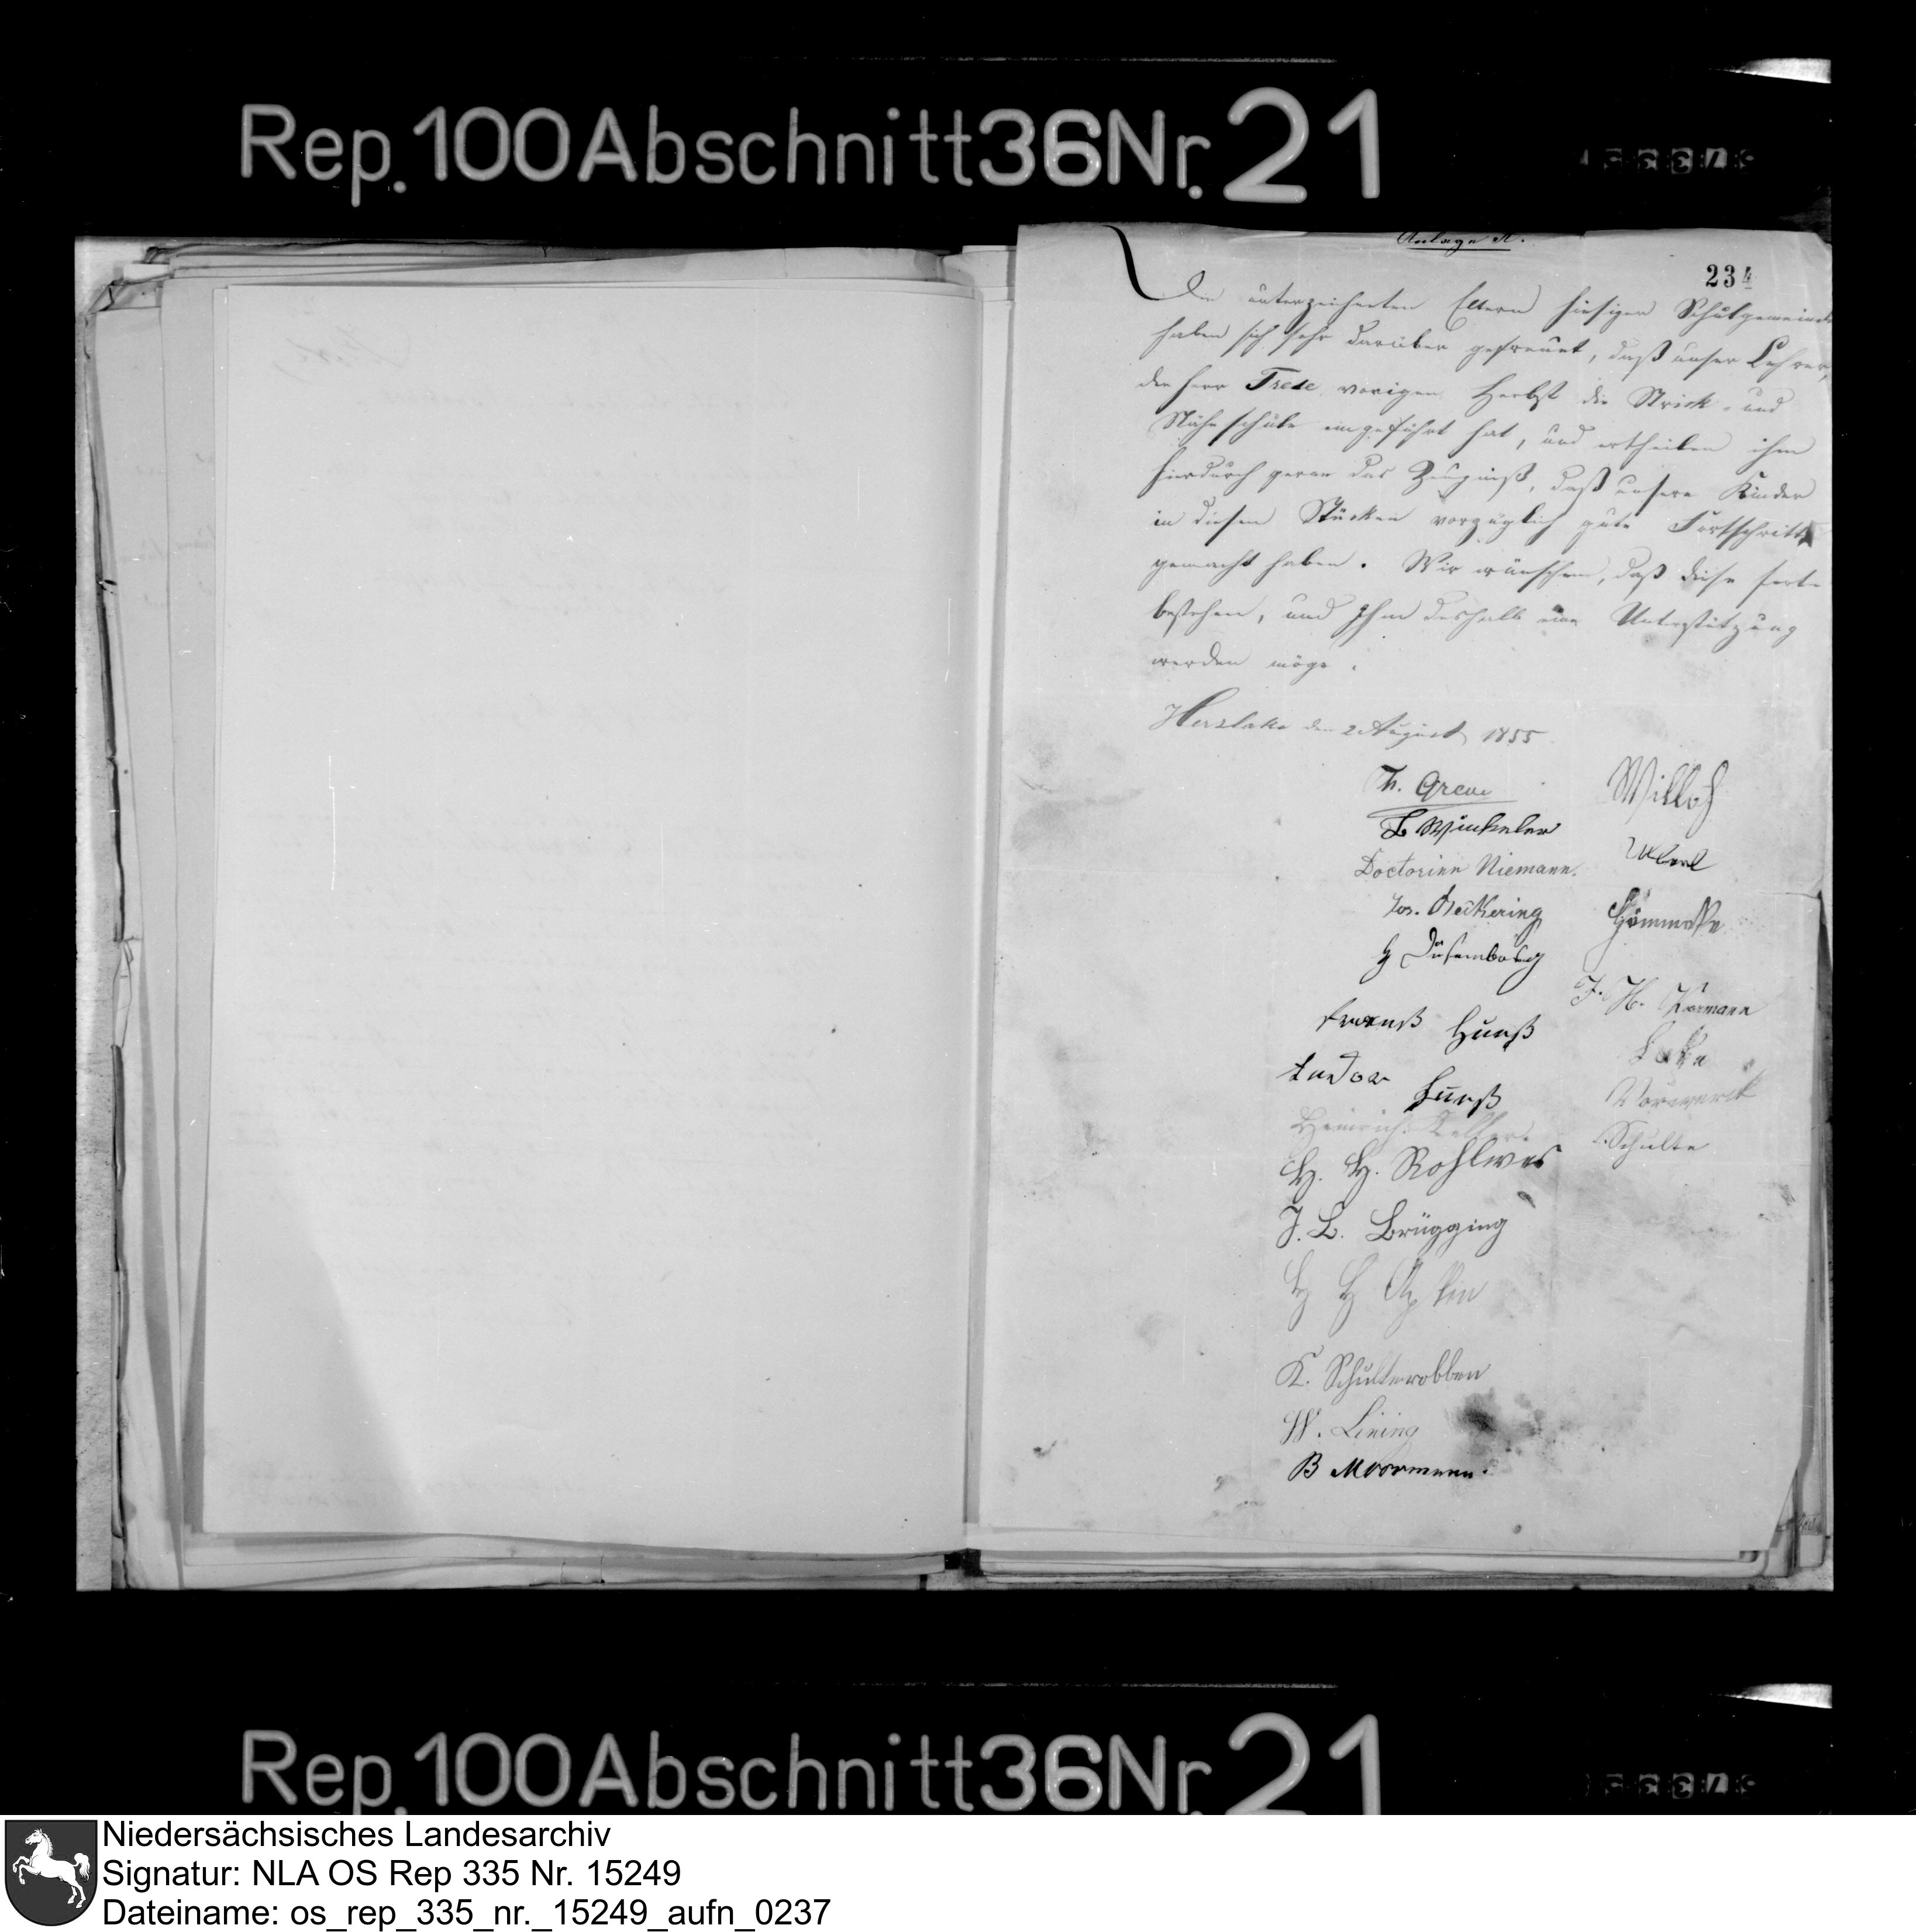 Rep. 100 Abschnitt 36 Nr. 21
Anlage A.
234
Die unterzeichneten Eltern hiesiger Schulgemeinde
haben sich sehr darüber gefreuet, daß unser Lehrer,
der Herr Trese vorigen Herbst die Strick- und
Nähschule eingeführt hat, und ertheilen ihm
hierdurch gerne das Zeugniß, daß unsere Kinder
in diesen Stücken vorzüglich gute Fortschritte
gemacht haben. Wir wünschen, daß diese fort-
bestehen, und Ihm deshalb eine Unterstützung
werden möge.
Herzlake den 2 August 1855
Th. Greve
B Winkeler
Doctorinn Niemann.
Jos.
H Düsenborg
H. H. Rohlwes
J. B. Brügging
H H
K. Schulterobben
W. Lining
B Moormann.
J. H.
Vorwerck
Schulte
Rep. 100 Abschnitt 36 Nr. 21
Niedersächsisches Landesarchiv
Signatur: NLA OS Rep 335 Nr. 15249
Dateiname: os_rep_335_nr._15249_aufn_0237